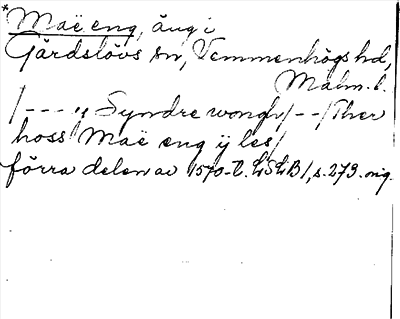 *Maë eng, äng i
Gärdslövs sn, Vemmenhögs hd,
Malm. l.
/--- „ Syndre wongh/--/Ther
hoss/Maë eng ÿ les/
förra delen av 1570-t. LSLB/, s. 273. orig.